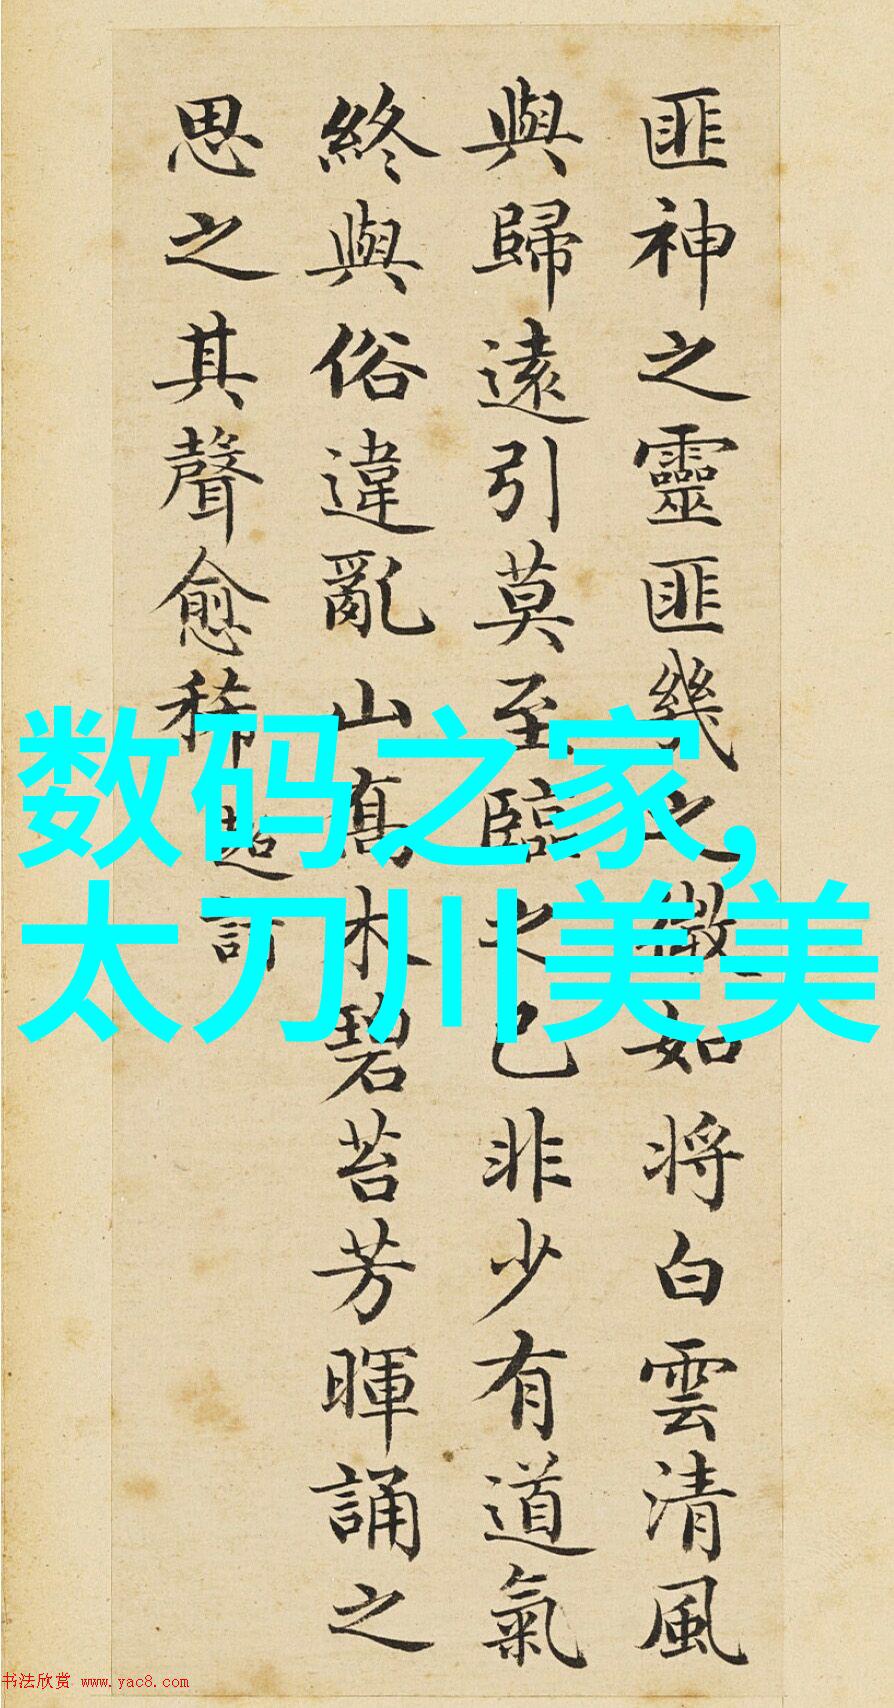 匪神之靈匪幾之微如将白雲清風
與歸遠引莫至臨之已非少有道氣
終與俗違亂山高木碧苔芳暉誦之
思之其聲愈稀
超詣
数码之家,
太刀川美美
书法欣赏 www.yac8.com